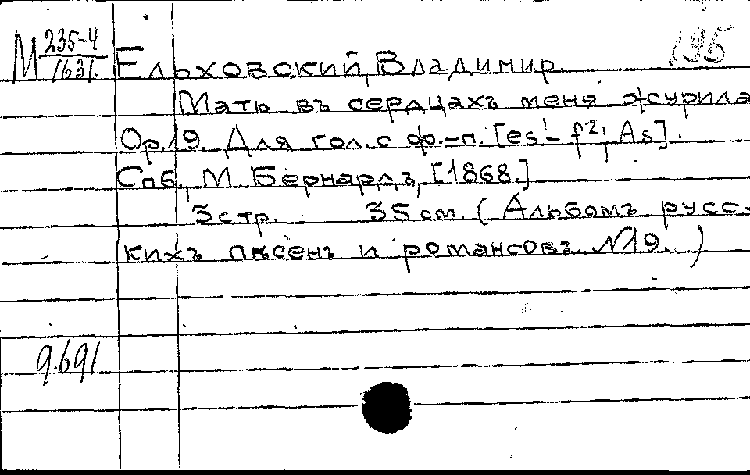 М 235-4/1631. Ельховский, Владимир. 195
Мать въ сердцахъ меня журила
Op. 19. Для гол. с ф.-п. [es¹ - f², As].
Спб, М. Бернардъ, [1868.]
3 стр. 35 см. (Альбомъ русс-
кихъ пѣсенъ и романсовъ. N19.)
9.691